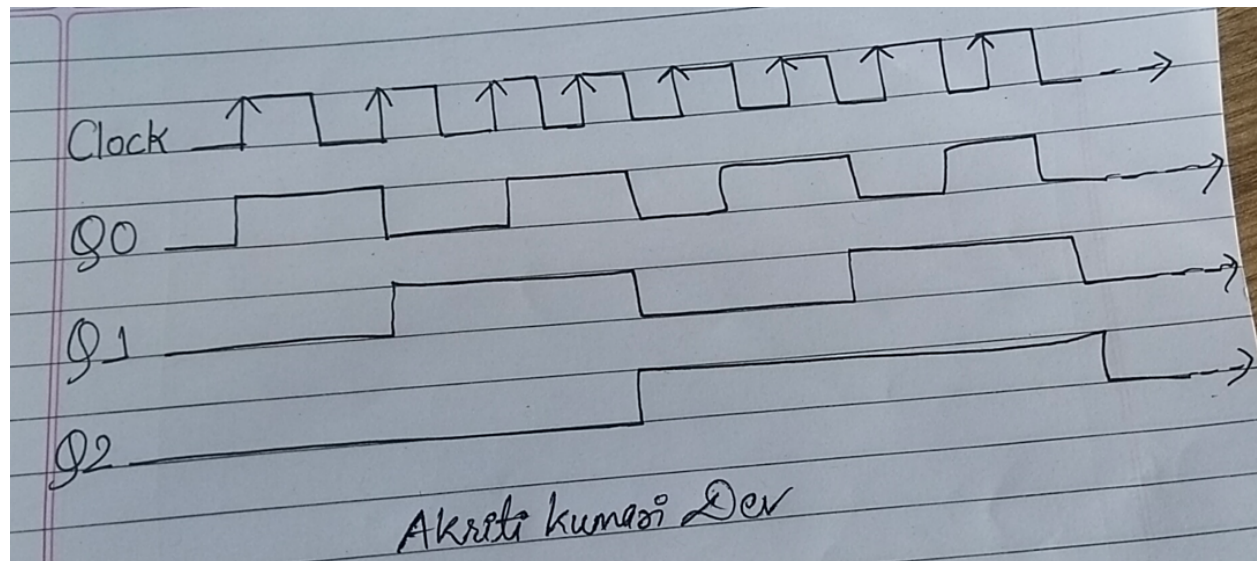 Clock
Q0
Q1
Q2
Akriti Kumari Dev